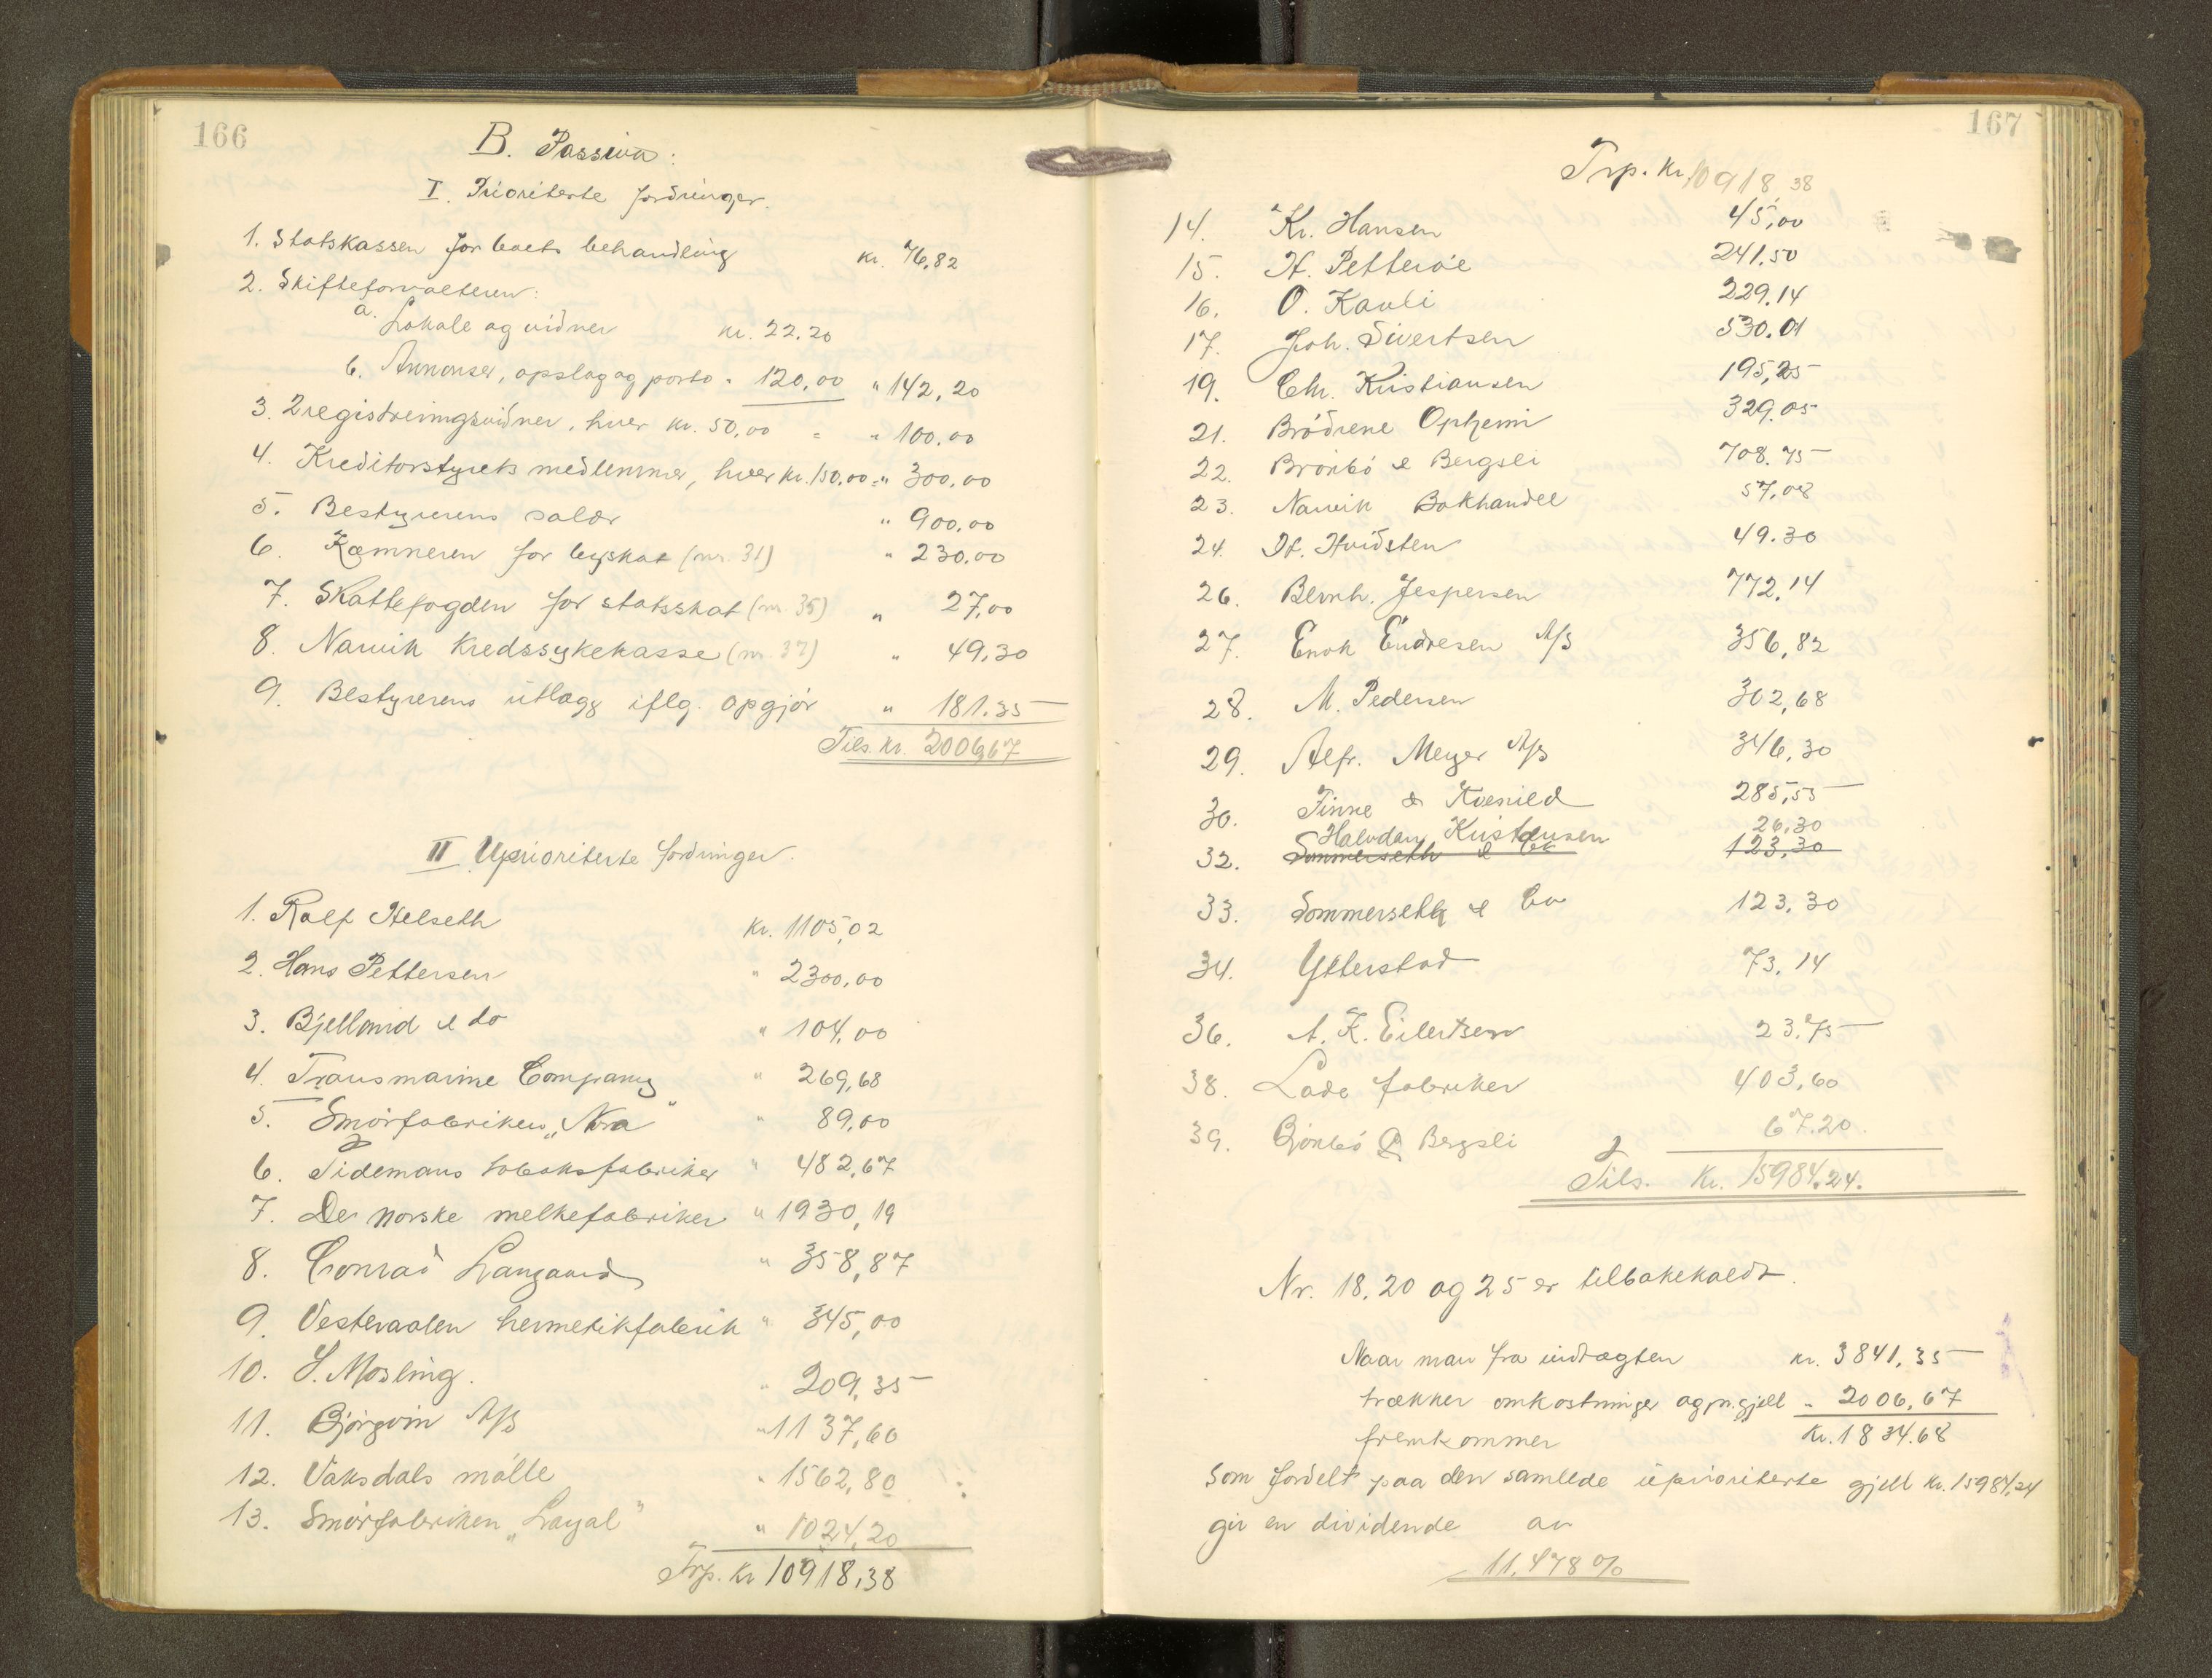 166
B. Passiva:
I. Prioriterte fordringer.
1. Statskassen for boets behandling kr. 76,82
2. Skifteforvalteren:
a. Lokale og vidner kr. 22.20
b. Annonser, opslag og porto " 120,00 " 142,20
3. 2 registreringsvidner, hver kr. 50,00 = " 100.00
4. Kreditorstyrets medlemmer, hver kr. 150,00 = " 300,00
5. Bestyrerens salær " 900,00
6. Kæmneren for byskat (nr. 31) " 230,00
7. Skattefogden for statsskat (nr. 35) " 27,00
8. Narvik Kredssykekasse (nr. 37) " 49,30
9. Bestyrerens utlagg iflg. opgjör " 181.35
Tils. kr. 2006,67
II Uprioriterte fordringer.
1. Ralf Helseth kr. 1105,02
2. Hans Pettersen " 2300,00
3. Bjelland & Co " 104,00
4. Transmarine Company " 269,68
5. Smörfabriken „Nora" " 89,00
6. Tidemans tobaksfabriker " 482,67
7. De norske melkefabriker " 1930,19
8. Conrad Langaard " 358,87
9. Vesteraalen hermetikfabrik " 345,00
10. S. Mosling. " 209,35
11. Björgvin A/S " 1137,60
12. Vaksdals mölle " 1562,80
13. Smörfabriken „Loyal" " 1024,20
Trp. kr 10918,38
167
Trp. kr. 10918,38
14. Kr. Hansen 45,00
15. H. Petteröe 241.50
16. O. Kavli 229.14
17. Joh. Sivertsen 530.01
19. Chr. Kristiansen 195,25
21. Brödrene Opheim 329,05
22. Brönbö & Bergsli 708.75
23. Narvik Bokhandel 57,08
24. H. Hvidsten 49.30
26. Bernh. Jespersen 772,14
27. Enok Endresen A/S 356,82
28. M. Pedersen 302,68
29. Alfr. Meyer A/S 346,30
30. Finne & Kvenild 285,55
Halvdan Kristensen 26,30
32. Sommerseth & Co 123,30
33. Sommerseth & Co 123,30
34. Ytterstad 73,14
36. A. K. Eilertsen 23.75
38. Lade fabriker 403,60
39. Brönbö & Bergsli 67.20
Tils. Kr. 15984.24.
Nr. 18, 20 og 25 er tilbakekaldt.
Naar man fra indtægten kr. 3841,35
trækker omkostninger og pr. gjell " 2006,67
fremkommer Kr. 1834.68
som fordelt paa den samlede uprioriterte gjell kr. 15984,24
gir en dividende av
11,478 %